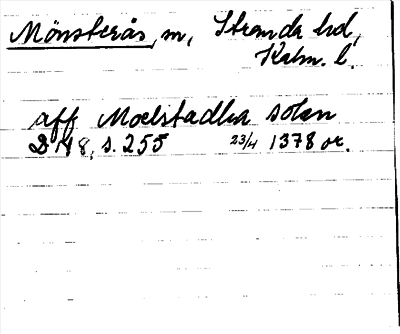 Mönsterås, m, Stranda hd,
Kalm. l.
aff Moelstadha sokn
D 118, s. 255 23/4 1378 or.